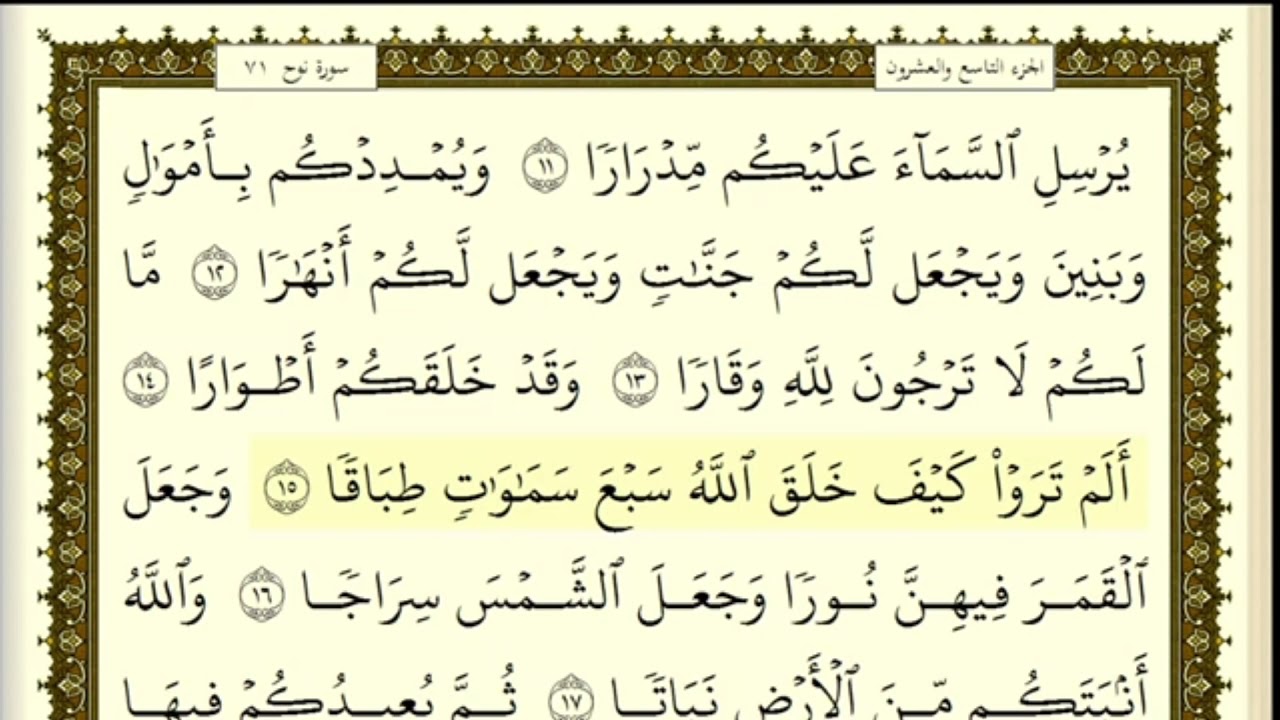 الجزء التاسع والعشرون
سورة نوح ٧١
يُرْسِلِ ٱلسَّمَآءَ عَلَيْكُم مِّدْرَارًا ١١ وَيُمْدِدْكُم بِأَمْوَٰلٍ
وَبَنِينَ وَيَجْعَل لَّكُمْ جَنَّٰتٍ وَيَجْعَل لَّكُمْ أَنْهَٰرًا ١٢ مَّا
لَكُمْ لَا تَرْجُونَ لِلَّهِ وَقَارًا ١٣ وَقَدْ خَلَقَكُمْ أَطْوَارًا ١٤
أَلَمْ تَرَوْا۟ كَيْفَ خَلَقَ ٱللَّهُ سَبْعَ سَمَٰوَٰتٍ طِبَاقًا ١٥ وَجَعَلَ
ٱلْقَمَرَ فِيهِنَّ نُورًا وَجَعَلَ ٱلشَّمْسَ سِرَاجًا ١٦ وَٱللَّهُ
أَنۢبَتَكُم مِّنَ ٱلْأَرْضِ نَبَاتًا ١٧ ثُمَّ يُعِيدُكُمْ فِيهَا